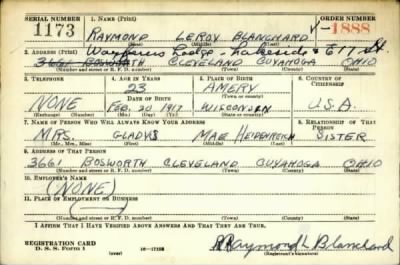 SERIAL NUMBER 1. NAME (Print)
1173 RAYMOND LEROY BLANCHARD V-1888
(First) (Middle) (Last)
2. ADDRESS (Print) Lodge - Lakeside & E 11 St.
3661 BOSWORTH CLEVELAND CUYAHOGA OHIO
(Number and street or R. F. D. number) (Town) (County) (State)
3. TELEPHONE 4. AGE IN YEARS 5. PLACE OF BIRTH 6. COUNTRY OF CITIZENSHIP
23 AMERY
NONE DATE OF BIRTH (Town or county)
FEB. 20 1917 WISCONSIN U.S.A.
(Exchange) (Number) (Mo.) (Day) (Yr.) (State or country)
7. NAME OF PERSON WHO WILL ALWAYS KNOW YOUR ADDRESS 8. RELATIONSHIP OF THAT PERSON
MRS. GLADYS MAE HEIDENREICH SISTER
(Mr., Mrs., Miss) (First) (Middle) (Last)
9. ADDRESS OF THAT PERSON
3661 BOSWORTH CLEVELAND CUYAHOGA OHIO
(Number and street or R. F. D. number) (Town) (County) (State)
10. EMPLOYER'S NAME
(NONE)
11. PLACE OF EMPLOYMENT OR BUSINESS
(Number and street or R. F. D. number) (Town) (County) (State)
I AFFIRM THAT I HAVE VERIFIED ABOVE ANSWERS AND THAT THEY ARE TRUE.
REGISTRATION CARD Raymond L Blanchard
D. S. S. Form 1 (over) (Registrant's signature)